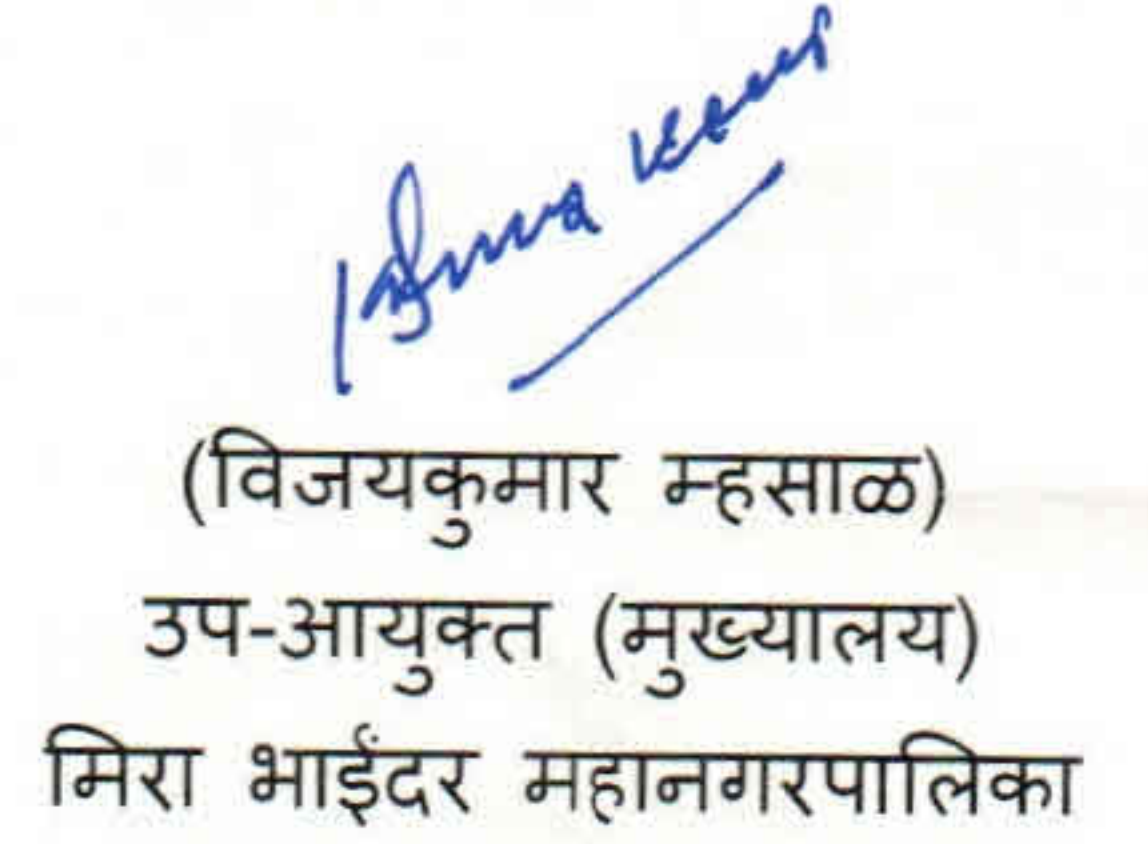 (विजयकुमार म्हसाळ)
उप-आयुक्त (मुख्यालय)
मिरा भाईंदर महानगरपालिका